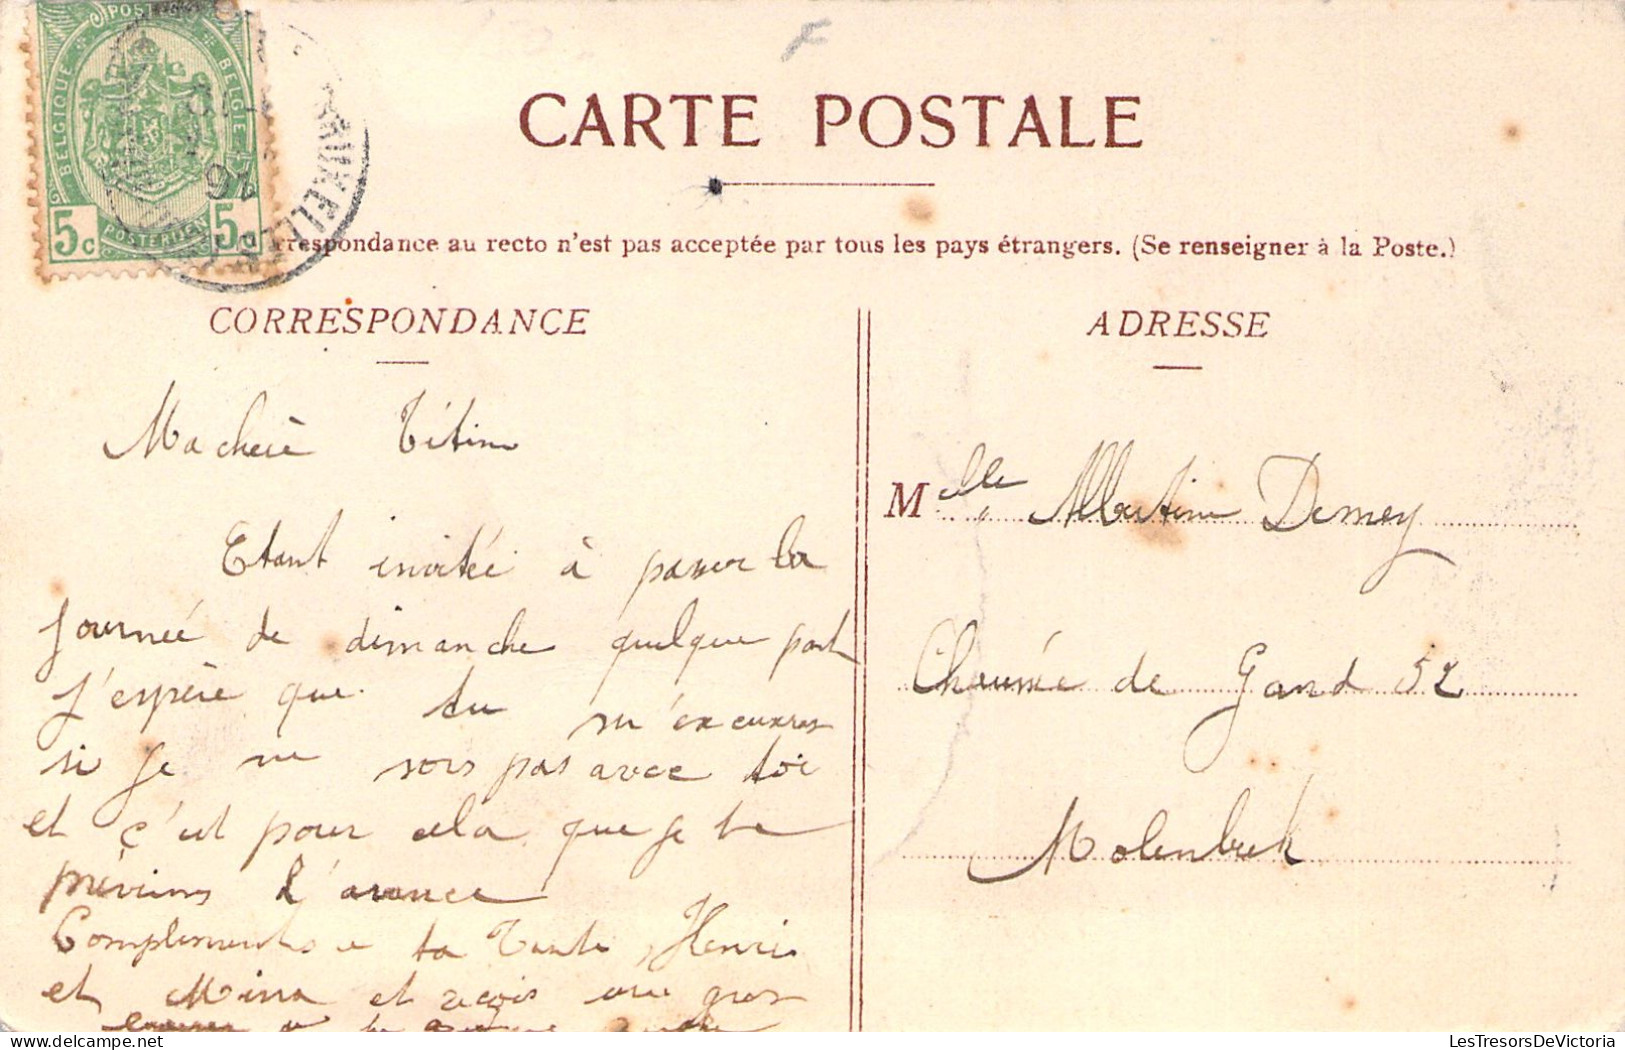 POSTERIJEN
BELGIQUE
BELGIE
5c
5c
BRUXELLES
CARTE POSTALE
rrespondance au recto n'est pas acceptée par tous les pays étrangers. (Se renseigner à la Poste.)
CORRESPONDANCE
ADRESSE
Ma cheré Titine
Etant invitée à passer la
journée de dimanche quelque part
j'espère que tu m'excuseras
si je ne sors pas avec toi
et c'est pour cela que je te
préviens d'avance
Complements a ta Tante, Henri
et Mina et reçois une gros
Melle Albertine Demey
Chaussée de Gand 52
Molenbeek
LesTresorsDeVictoria